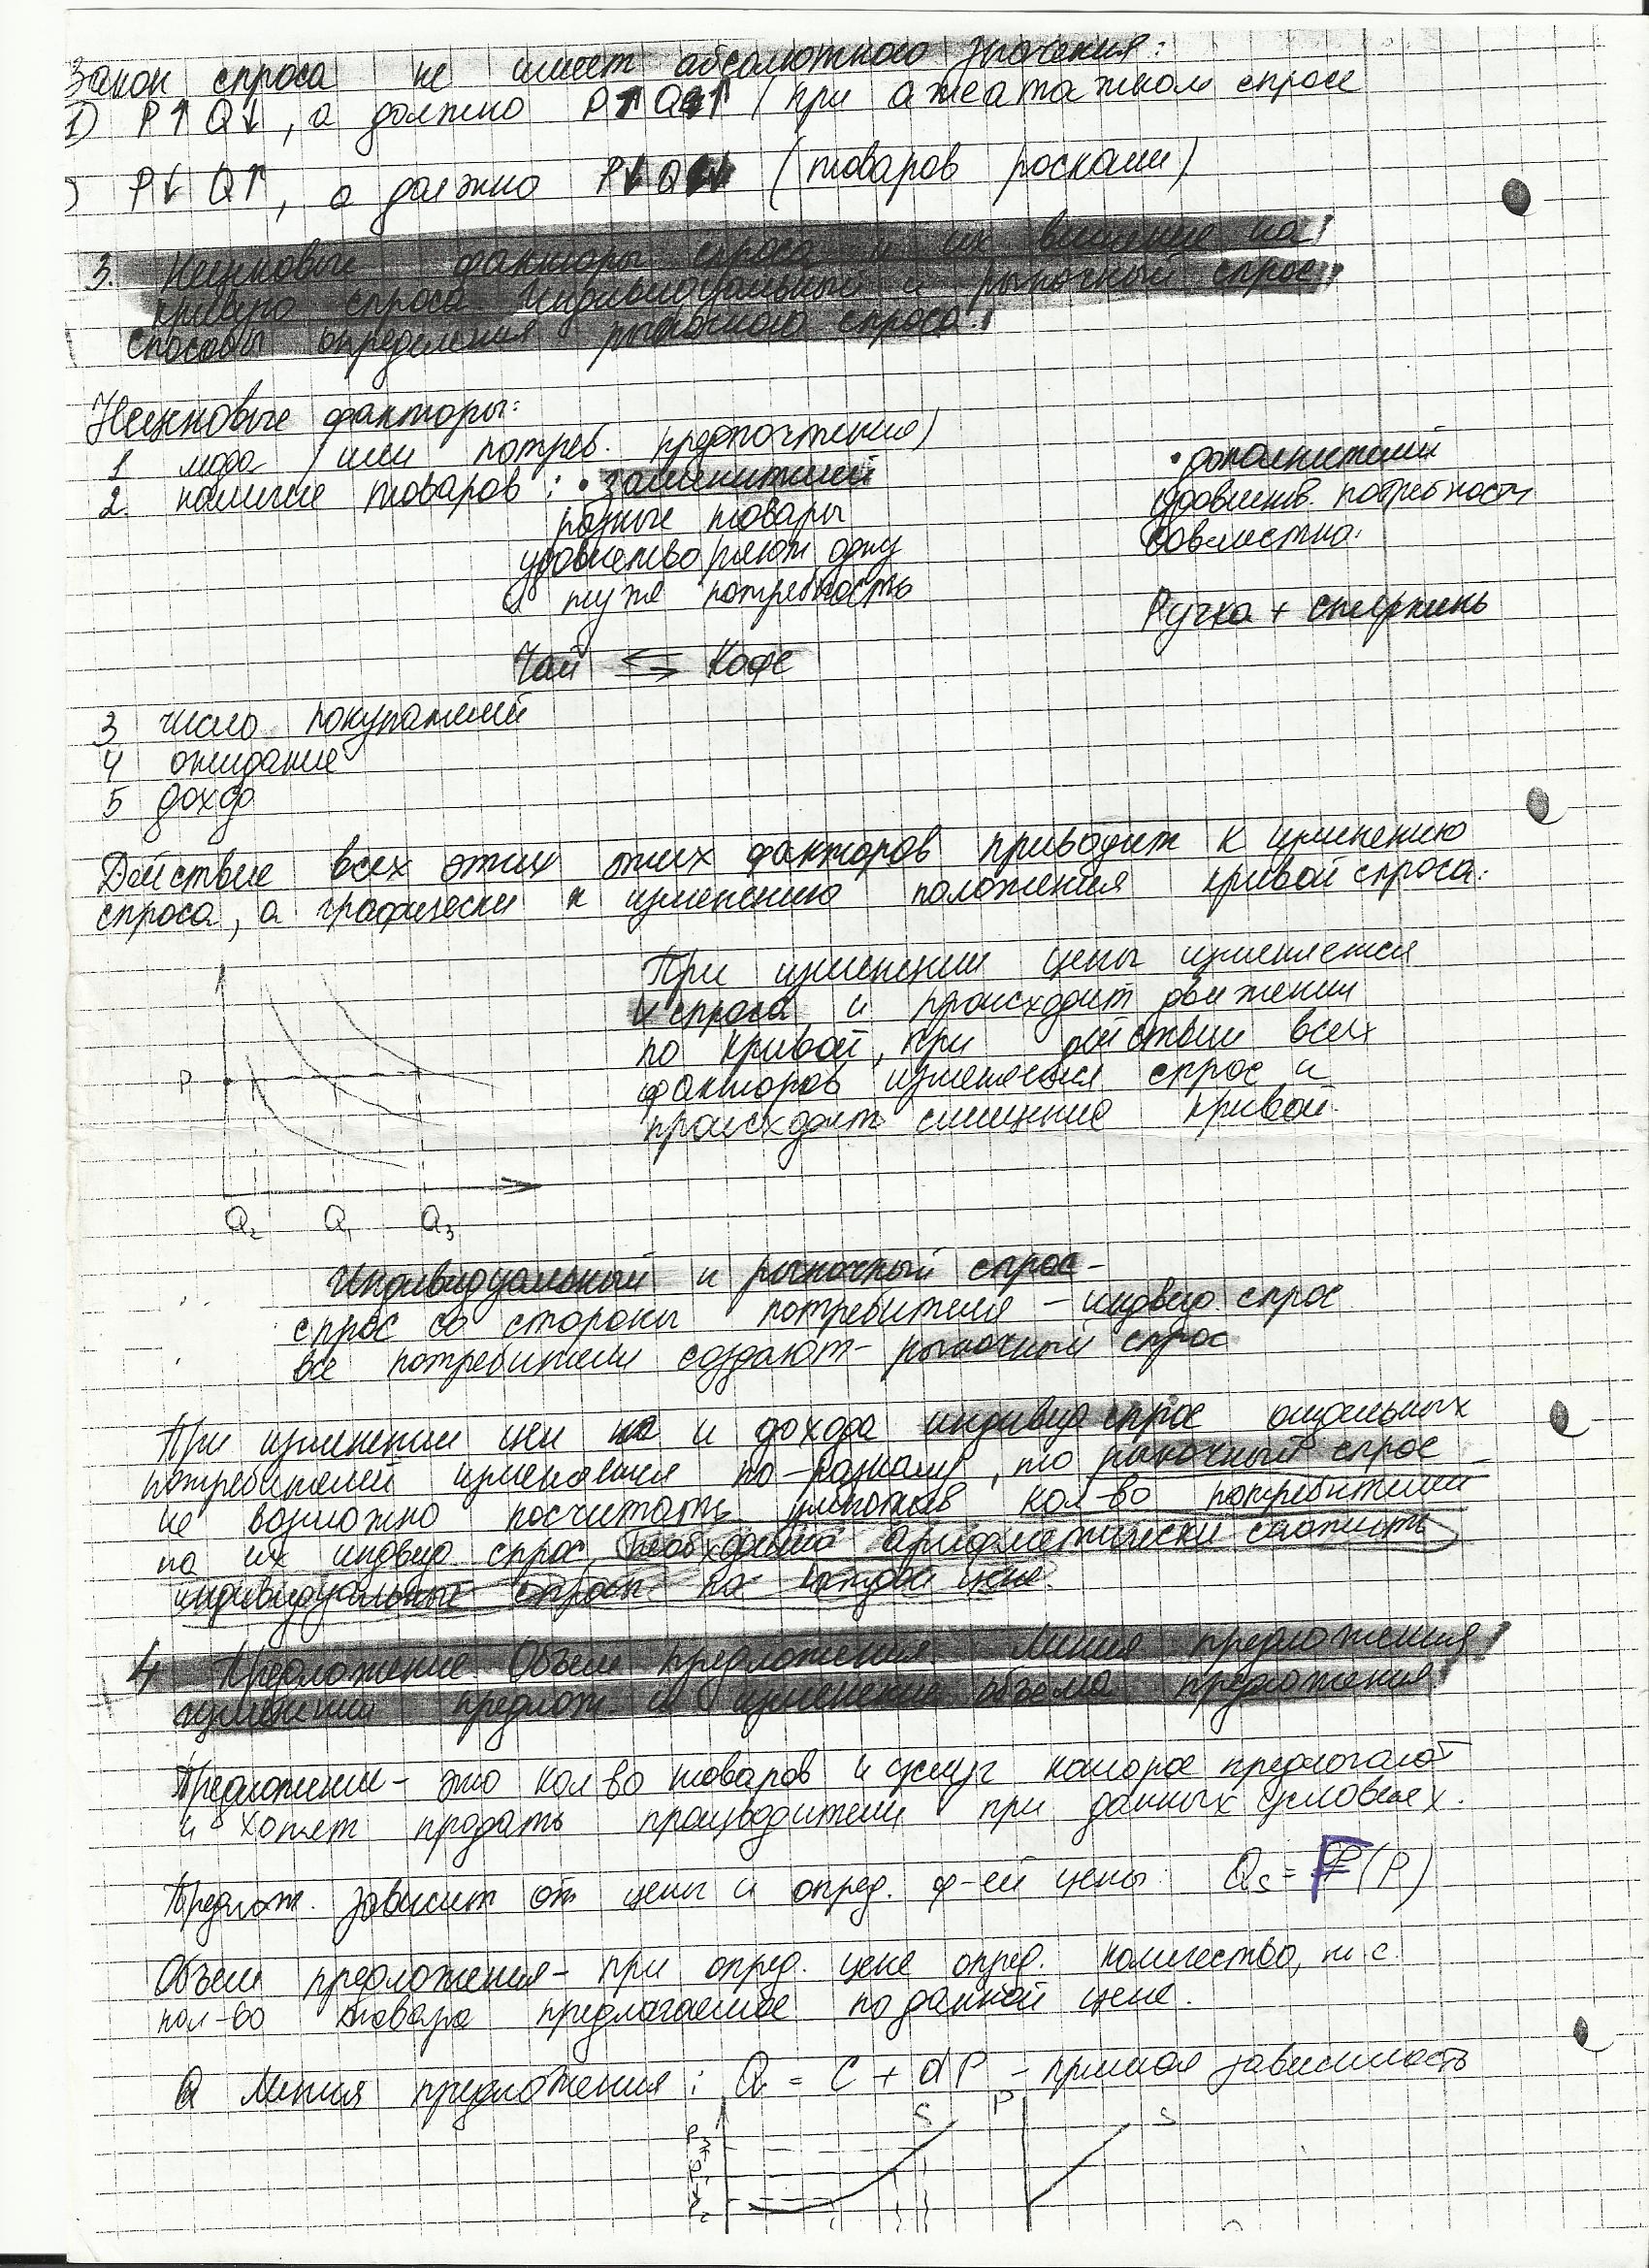 Закон спроса не имеет абсолютного значения:
1) P↑ Q↓, а должно P↑ Q↑ (при ажеатажном спросе
) P↓ Q↑, а должно P↓ Q↓ (товаров роскоши)
3. Неценовые факторы спроса и их влияние на
кривую спроса. Индивидуальный и рыночный спрос,
способы определения рыночного спроса.
Неценовые факторы:
1 мода (или потреб. предпочтения)
2. наличие товаров: • заменителей
разные товары
удовлетворяют одну
и туже потребность
Чай ⇆ Кофе
• дополнителей
удовлетв. потребности
совместно.
Ручка + стержень
3 число покупателей
4 ожидание
5 доход
Действие всех этих этих факторов приводит к изменению
спроса, а графически к изменению положения кривой спроса.
При изменении цены изменяется
V спроса и происходит движении
по кривой, при действии всех
факторов изменяется спрос и
происходит смещение кривой.
P
Q2 Q1 Q3
Индивидуальный и рыночный спрос -
спрос со стороны потребителя - индивид спрос
все потребители создают - рыночный спрос
При изменении цен на и дохода индивид спрос отдельных
потребителей изменяется по-разному, то рыночный спрос
не возможно посчитать умножив кол-во потребителей
на их индивид спрос, необходимо арифметически сложить
индивидуальные спросы на каждой цене.
4 Предложение. Объем предложения. Линия предложения,
изменении предлож. и изменение объема предложения
Предложение - это кол во товаров и услуг которое предлагают
и хотят продать производители при данных условиях.
Предлож. зависит от цены и опред. ф-ей цены: Qs = F(P)
Объем предложения - при опред. цене опред. количество, т.е.
кол-во товара предлагаемое по данной цене.
Линия предложения: Q = C + dP - прямая зависимость
S P S
P3
P1
P2